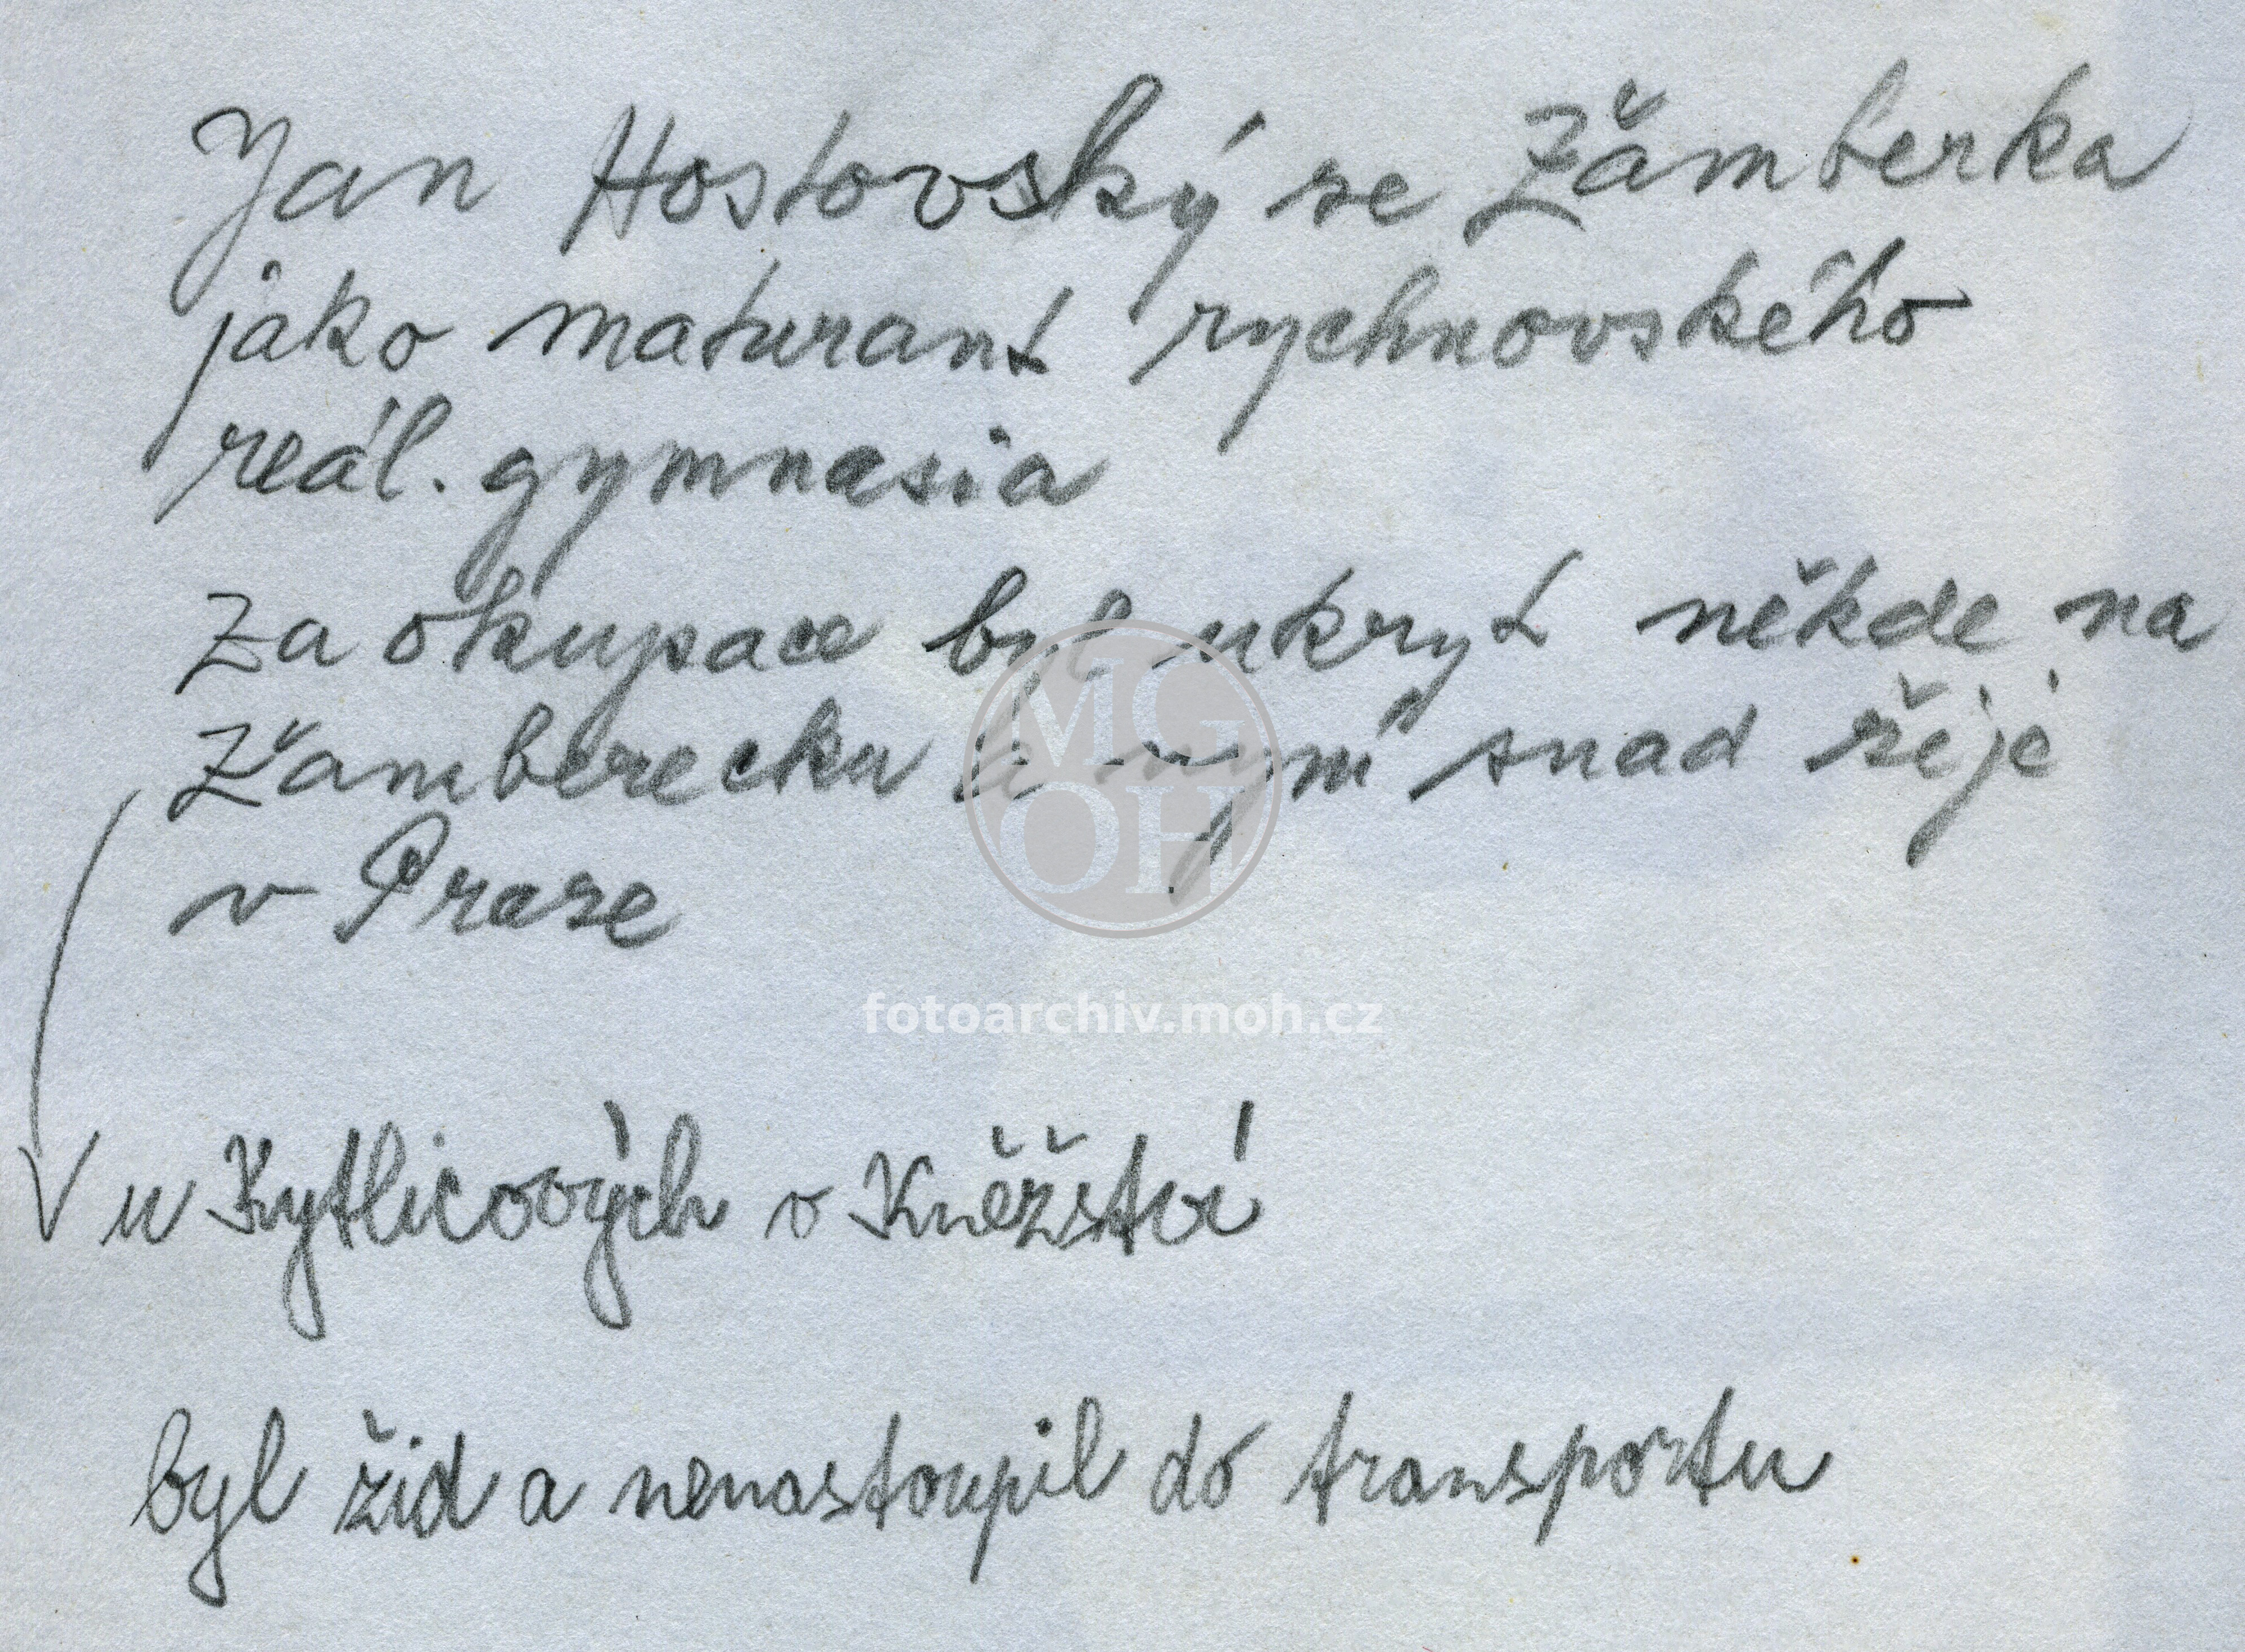 Jan Hostovský ze Žamberka
jako maturant rychnovského
reál. gymnasia
Za okupace byl ukryt někde na
Žamberecku a nyní snad žije
v Praze
MG
OH
fotoarchiv.moh.cz
u Kytlicových v Kněžství
byl žid a nenastoupil do transportu